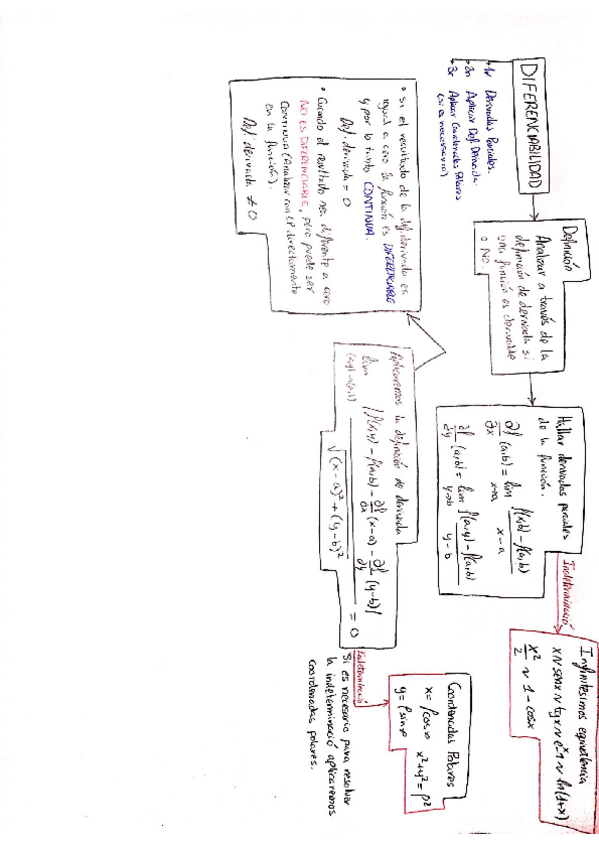 DIFERENCIABILIDAD
1r Derivadas Parciales.
2n Aplicar Def. Derivada.
3r Aplicar Coordenadas Polares
(si es necesario)
Definición
Analizar a través de la
definición de derivada si
una función es derivable
o NO.
Hallar derivadas parciales
de la función.
∂f/∂x (a,b) = lim x→a f(x,b) - f(a,b) / x - a
∂f/∂y (a,b) = lim y→b f(a,y) - f(a,b) / y - b
Indeterminació
Infinitésimos equivalencia
x ~ senx ~ tgx ~ eˣ-1 ~ ln(1+x)
x²/2 ~ 1 - cosx
Aplicaremos la definición de derivada
lim (x,y)→(a,b) |f(x,y) - f(a,b) - ∂f/∂x (x-a) - ∂f/∂y (y-b)| / √(x-a)² + (y-b)² = 0
Indeterminació
Si es necesario para resolver
la indeterminació aplicaremos
coordenadas polares.
Coordenadas Polares
x = ρcos∝ x²+y² = ρ²
y = ρsin∝
• Si el resultado de la def. derivada es
igual a cero la función es DIFERENCIABLE
y por lo tanto CONTINUA.
Def. derivada = 0
• Cuando el resultado sea diferente a cero
NO ES DIFERENCIABLE, pero puede ser
CONTINUA (Analizar con directamente
en la función).
Def. derivada ≠ 0